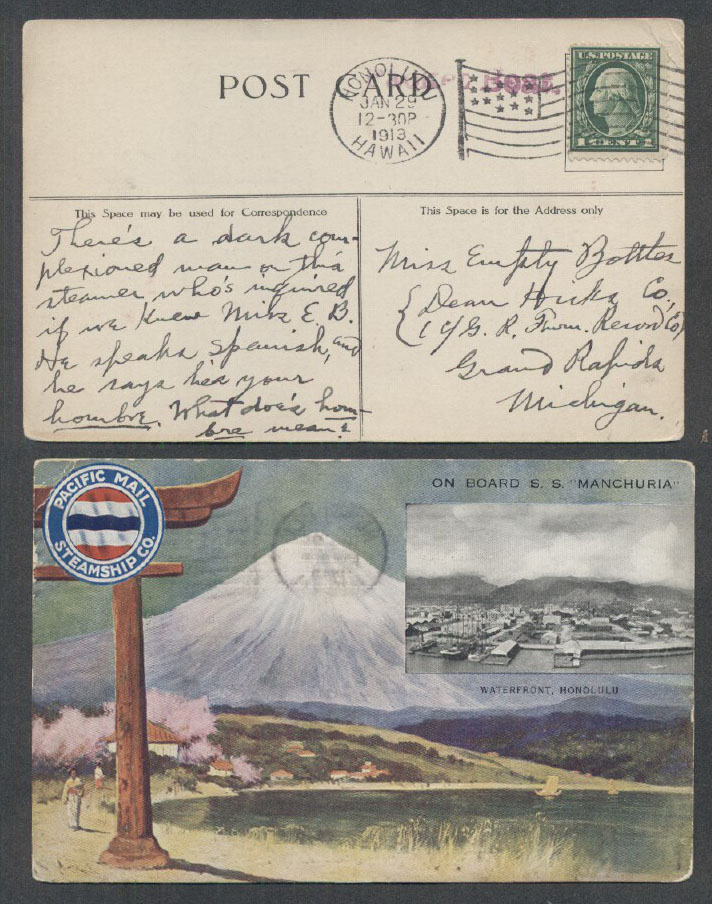 POST CARD
HONOLULU
JAN 29
12-30P
1913
HAWAII
U.S. POSTAGE
1 CENT 1
This Space may be used for Correspondence
There's a dark com-
plexioned man on this
steamer who's inquired
if we knew Miss E. B.
He speaks Spanish, and
he says he's your
hombre. What does hom-
bre mean?
This Space is for the Address only
Miss Empty Bottles
{ Dean Hicks Co.,
{ c/o G. R. Furn. Record Co)
Grand Rapids
Michigan.
PACIFIC MAIL
STEAMSHIP CO.
ON BOARD S. S. "MANCHURIA"
WATERFRONT, HONOLULU